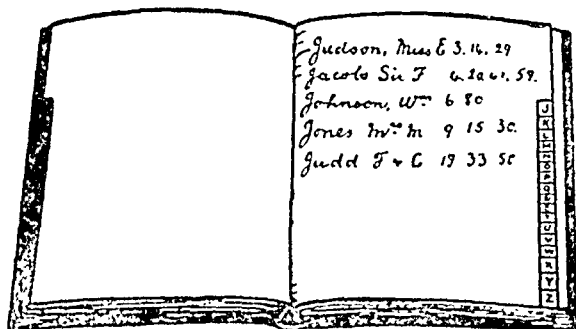 Judson, Miss E 3. 14. 29
Jacobs Sir F 4. 20 41. 59.
Johnson, Wm 6 80
Jones Mrs M 9 15 30.
Judd F & C 19 33 50
J
K
L
X
Y
Z